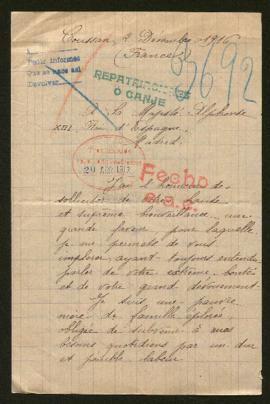 Coursan 2 Décembre 1916
(France)
Pedir informes
Devolver
REPATRIACIONES
O CANJE
63692
A Sa Majesté Alphonse
XIII Roi d'Espagne
Madrid
Fecho
J'ai l'honneur de
solliciter de votre haute
et suprême bienveillance une
grande faveur pour laquelle
je me permets de vous
implorer ayant toujours entendu
parler de votre extrême bonté
et de votre grand dévouement
Je suis une pauvre
mère de famille éplorée
obligée de subvenir à mes
besoins quotidiens par un dur
et pénible labeur